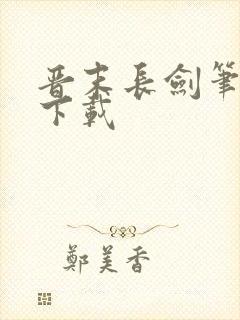 晋末長劍筆
下載
鄭美香